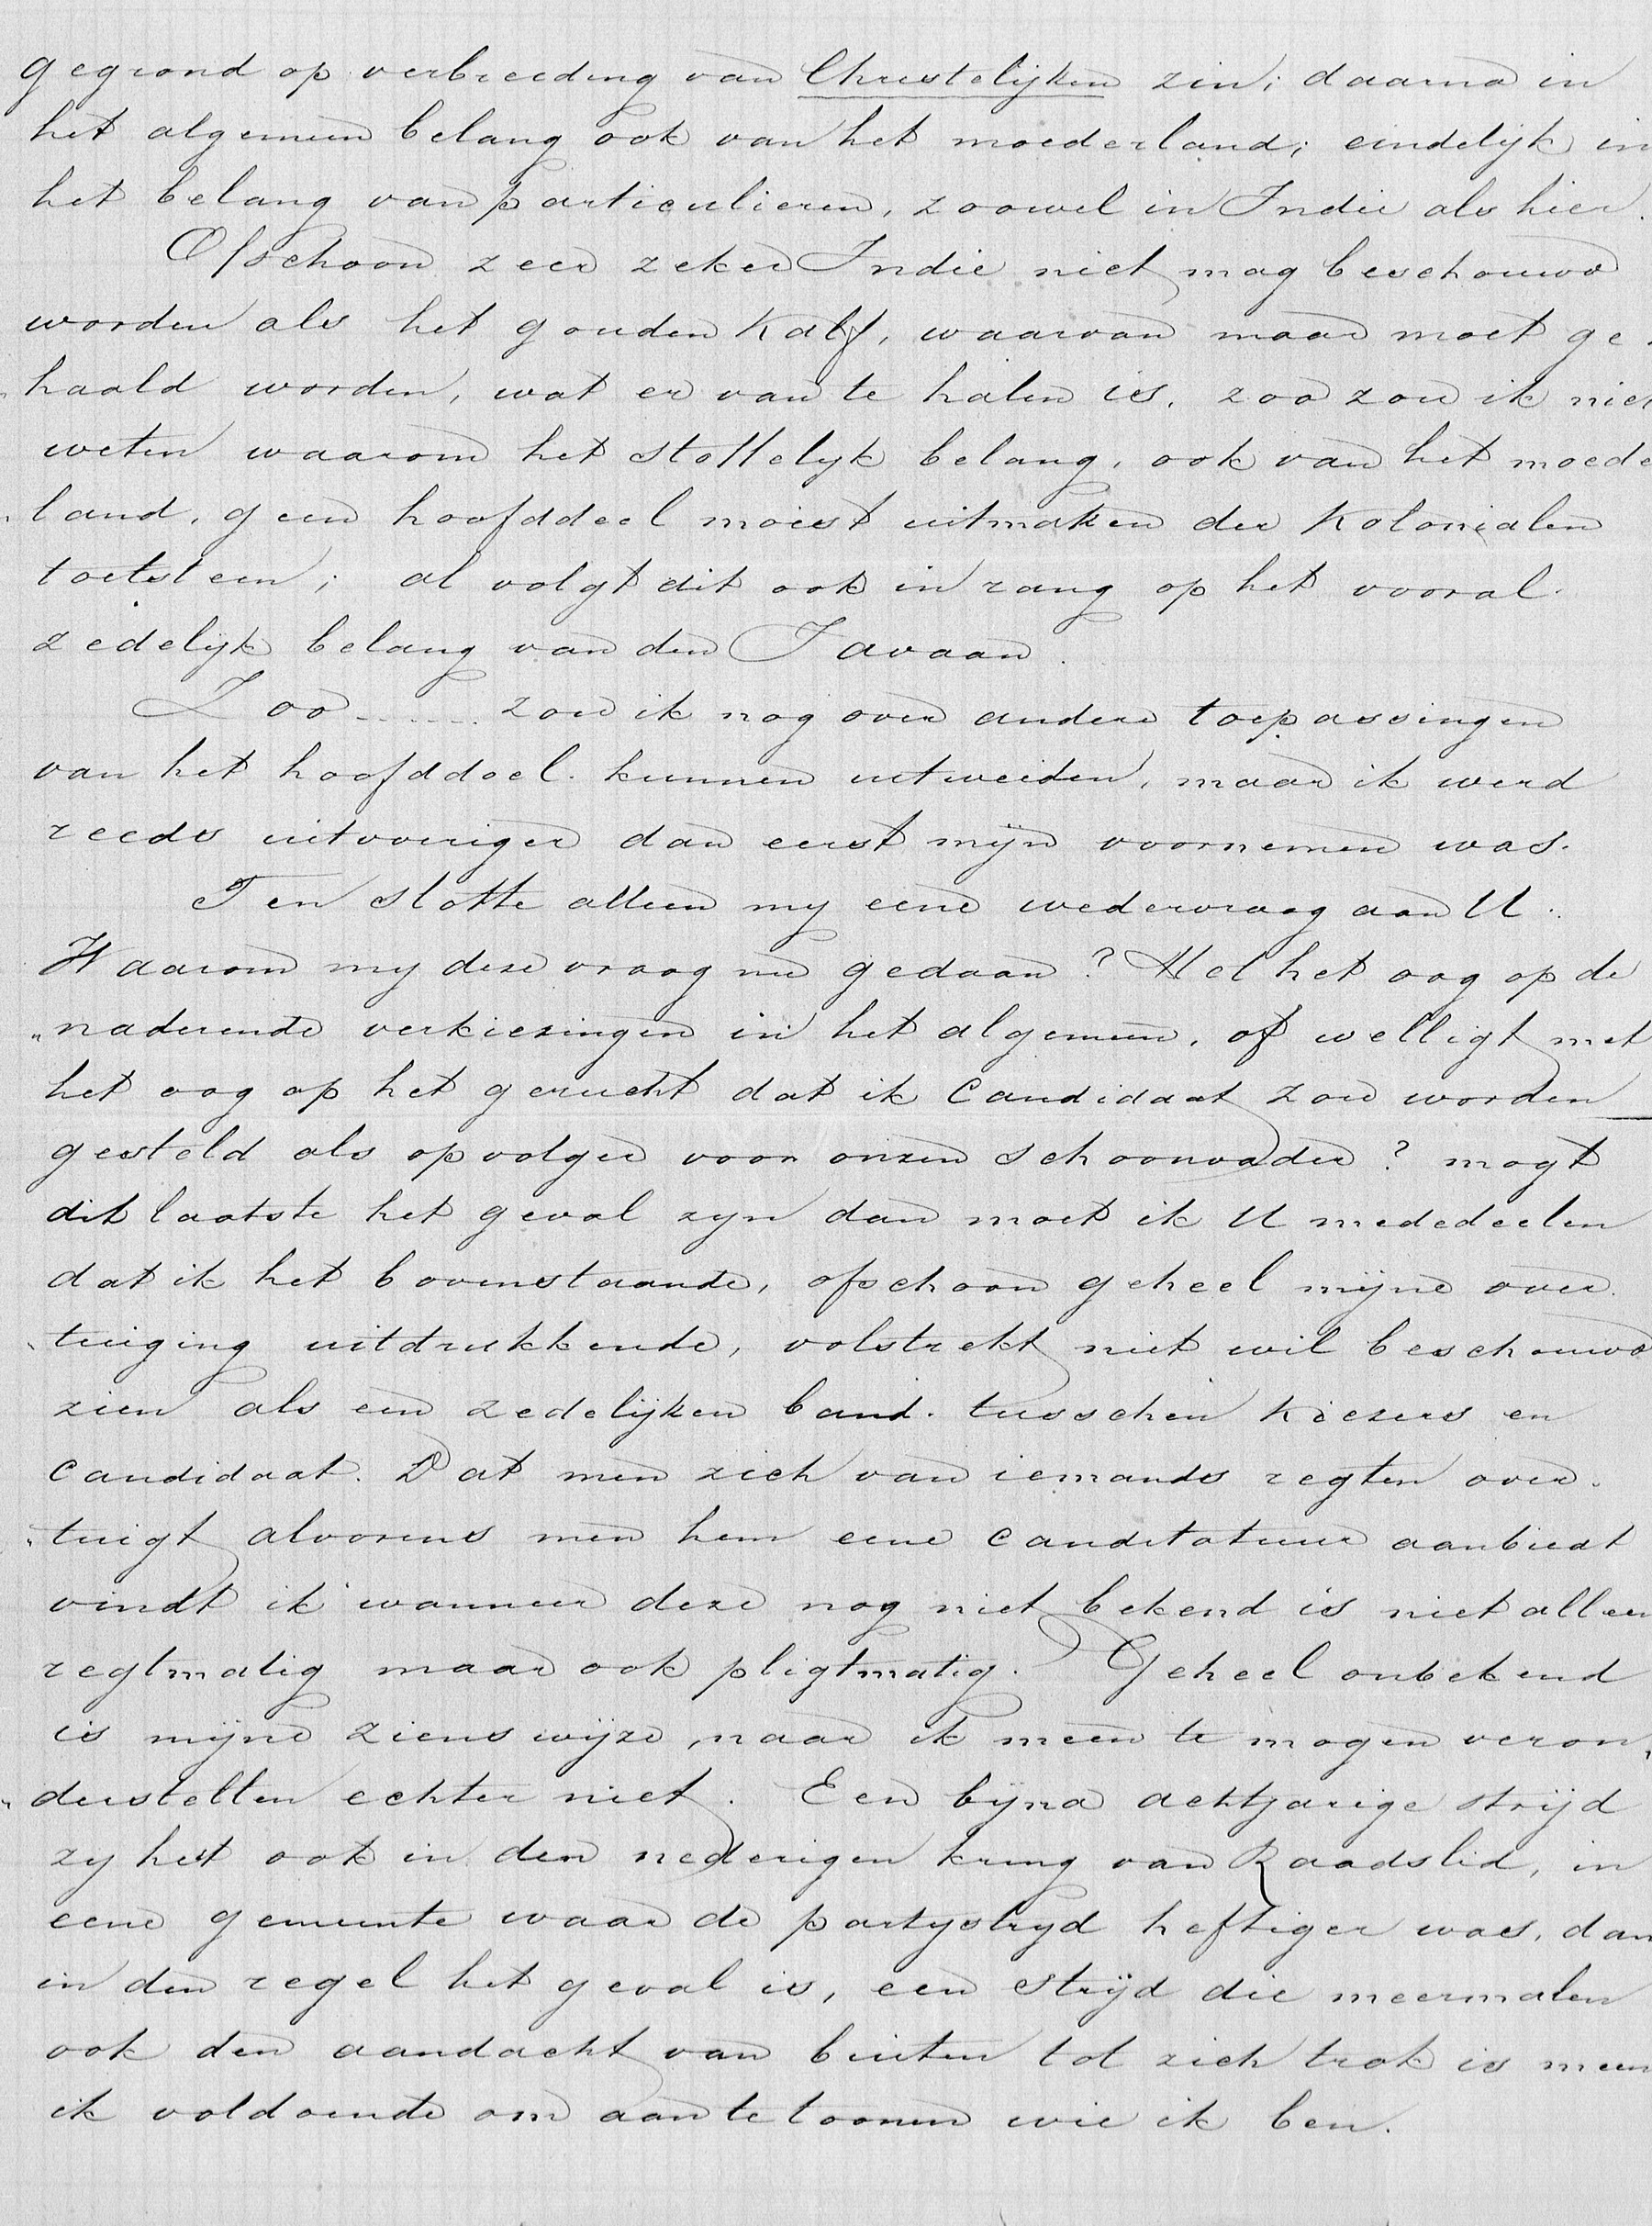 gegrond op verbreeding van Christelijken zin; daarna in
het algemeen belang ook van het moederland; eindelijk in
het belang van particulieren, zoowel in Indie als hier.
Ofschoon zeer zeker Indie niet mag beschouwd
worden als het gouden Kalf, waarvan maar moet ge-
„haald worden, wat er van te halen is, zoo zou ik niet
weten waarom het stoffelyk belang, ook van het moeder
„land, geen hoofddeel moest uitmaken der Kolonialen
toetsteen; al volgt dit ook in rang op het vooral
zedelijk belang van den Javaan.
Zoo ------ zou ik nog over andere toepassingen
van het hoofddoel kunnen uitweiden, maar ik werd
reeds uitvoeriger dan eerst mijn voornemen was.
Ten slotte alleen my eene wedervraag aan U.
Waarom my deze vraag nu gedaan? Met het oog op de
„naderende verkiezingen in het algemeen, of welligt met
het oog op het gerucht dat ik Candidaat zou worden
gesteld als opvolger voor onzen schoonvader? mogt
dit laatste het geval zyn dan moet ik U mededeelen
dat ik het bovenstaande, ofschoon geheel mijne over
„tuiging uitdrukkende, volstrekt niet wil beschouwd
zien als een zedelijken band tusschen Kiezers en
Candidaat. Dat men zich van iemands regten over-
„tuigt alvorens men hem eene canditatuur aanbiedt
vindt ik wanneer deze nog niet bekend is niet alleen
regtmatig maar ook pligtmatig. Geheel onbekend
is mijne zienswijze, naar ik meen te mogen veron„
„derstellen echter niet. Een bijna achtjarige strijd
zy het ook in den nederigen kring van Raadslid, in
eene gemeente waar de partystryd heftiger was, dan
in den regel het geval is, een strijd die meermalen
ook den aandacht van buiten tot zich trok is meen
ik voldoende om aan te toonen wie ik ben.